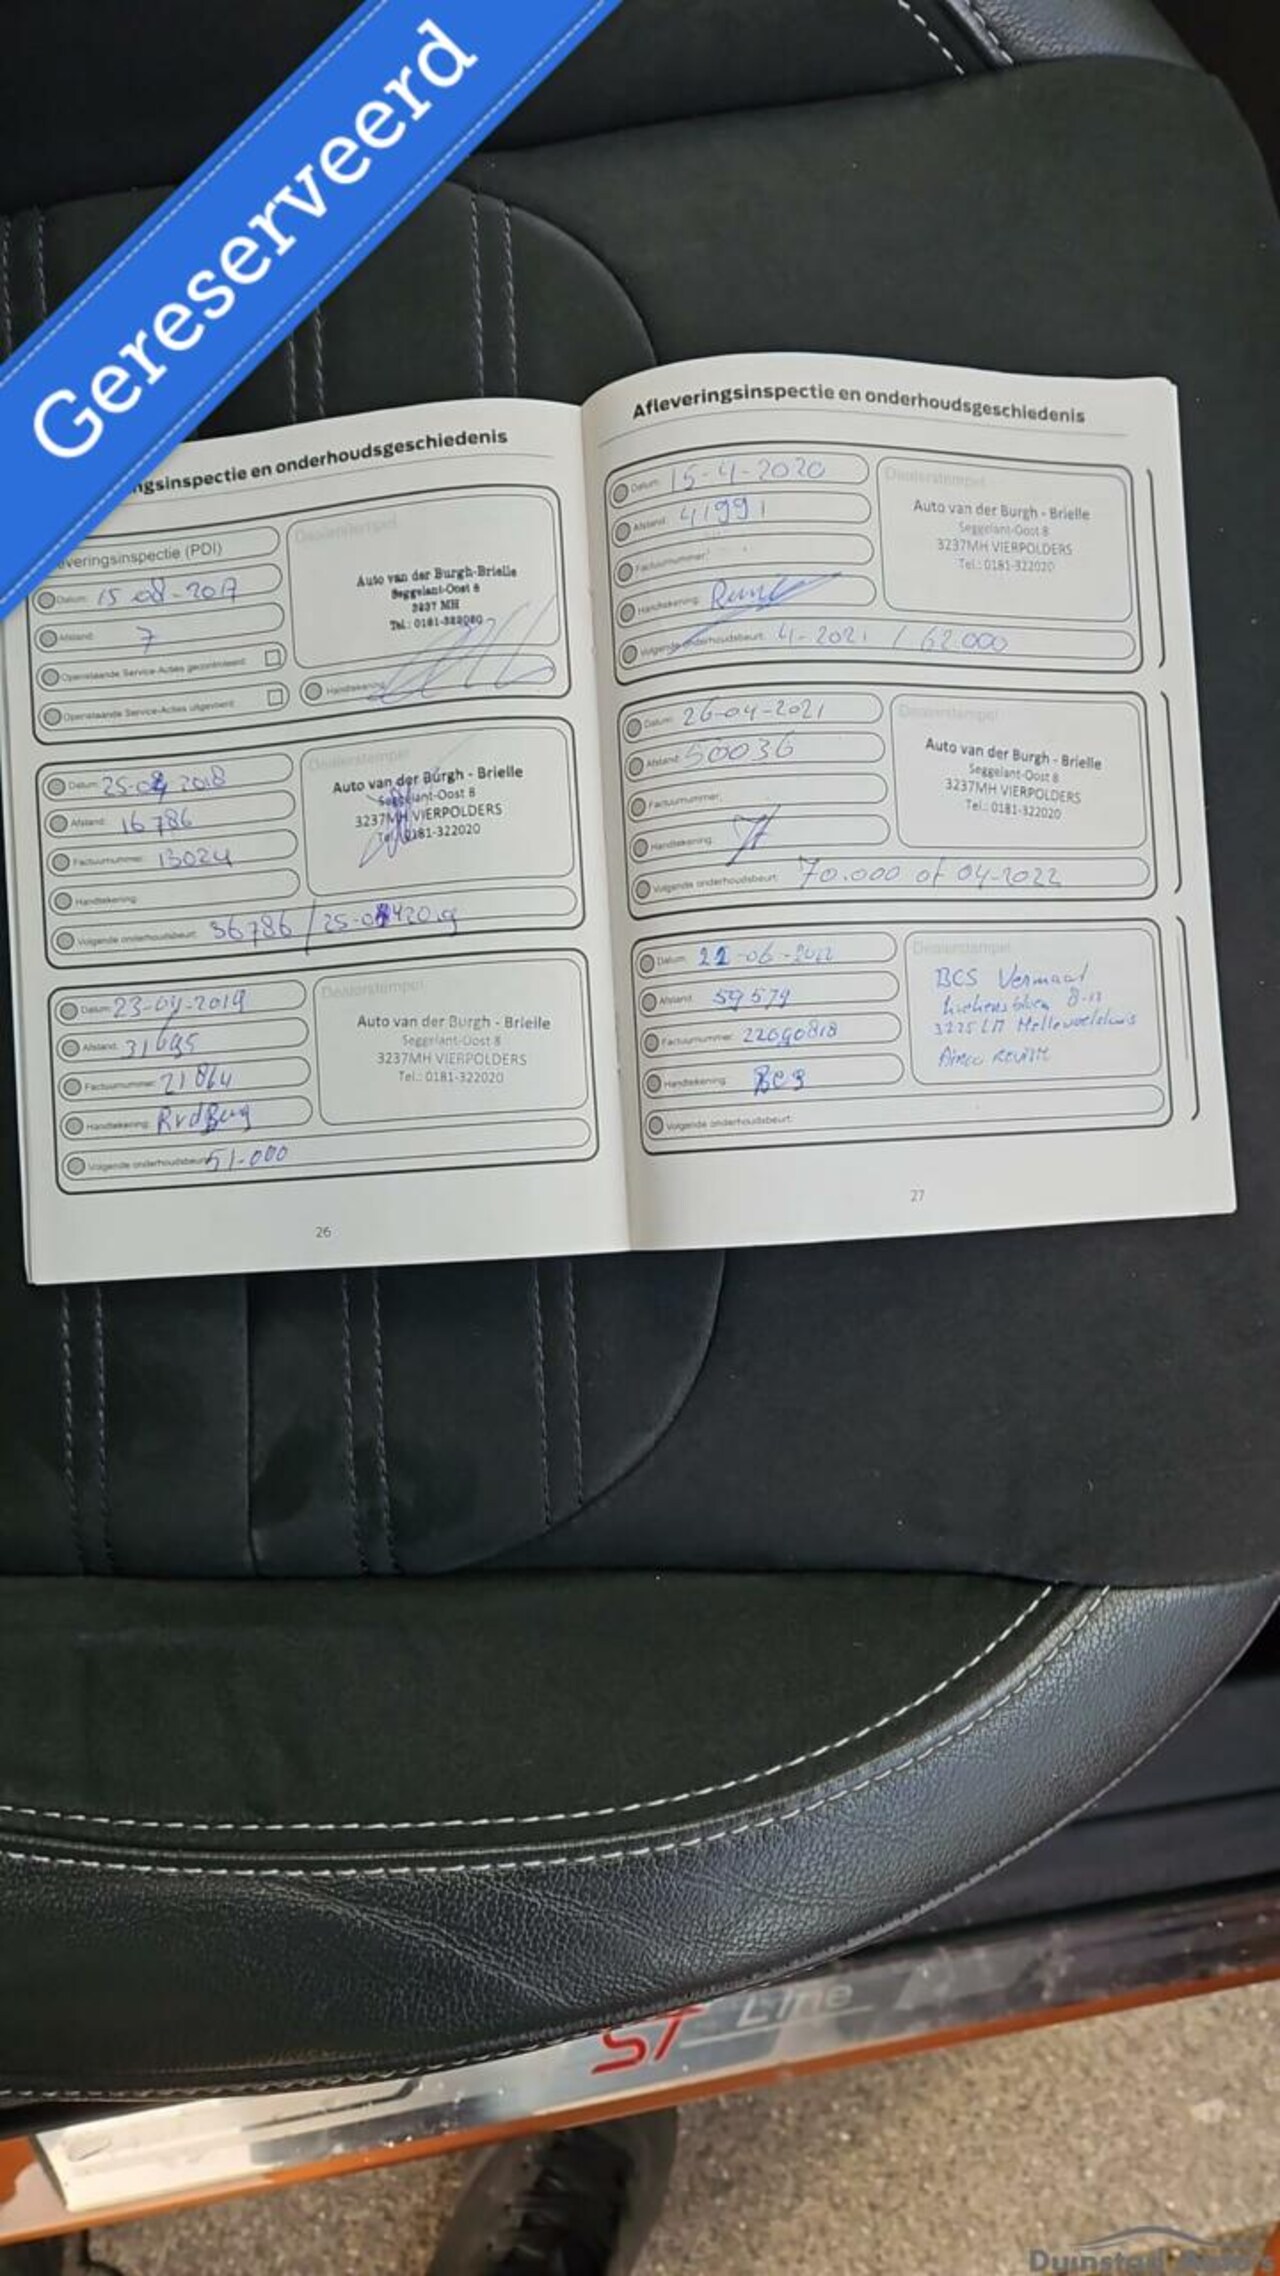 Gereserveerd
ngsinspectie en onderhoudsgeschiedenis
everingsinspectie (PDI)
Datum: 15-08-2017
Afstand: 7
Openstaande Service-Acties gecontroleerd:
Openstaande Service-Acties uitgevoerd:
Dealerstempel
Auto van der Burgh-Brielle
Seggelant-Oost 8
3237 MH
Tel.: 0181-322020
Handtekening:
Datum: 25-04-2018
Afstand: 16786
Factuurnummer: 13024
Handtekening:
Volgende onderhoudsbeurt: 36786 / 25-04-2019
Dealerstempel
Auto van der Burgh - Brielle
Seggelant-Oost 8
3237MH VIERPOLDERS
Tel.: 0181-322020
Datum: 23-04-2019
Afstand: 31695
Factuurnummer: 21864
Handtekening: RvdBurg
Volgende onderhoudsbeurt: 51-000
Dealerstempel
Auto van der Burgh - Brielle
Seggelant-Oost 8
3237MH VIERPOLDERS
Tel.: 0181-322020
26
Afleveringsinspectie en onderhoudsgeschiedenis
Datum: 15-4-2020
Afstand: 41991
Factuurnummer:
Handtekening:
Volgende onderhoudsbeurt: 4-2021 / 62.000
Dealerstempel
Auto van der Burgh - Brielle
Seggelant-Oost 8
3237MH VIERPOLDERS
Tel.: 0181-322020
Datum: 26-04-2021
Afstand: 50036
Factuurnummer:
Handtekening:
Volgende onderhoudsbeurt: 70.000 of 04-2022
Dealerstempel
Auto van der Burgh - Brielle
Seggelant-Oost 8
3237MH VIERPOLDERS
Tel.: 0181-322020
Datum: 22-06-2022
Afstand: 59579
Factuurnummer: 22040818
Handtekening: BCS
Volgende onderhoudsbeurt:
Dealerstempel
BCS Vermaat
8-12
3225 LM Hellevoetsluis
27
ST Line
Duinstad Auto's